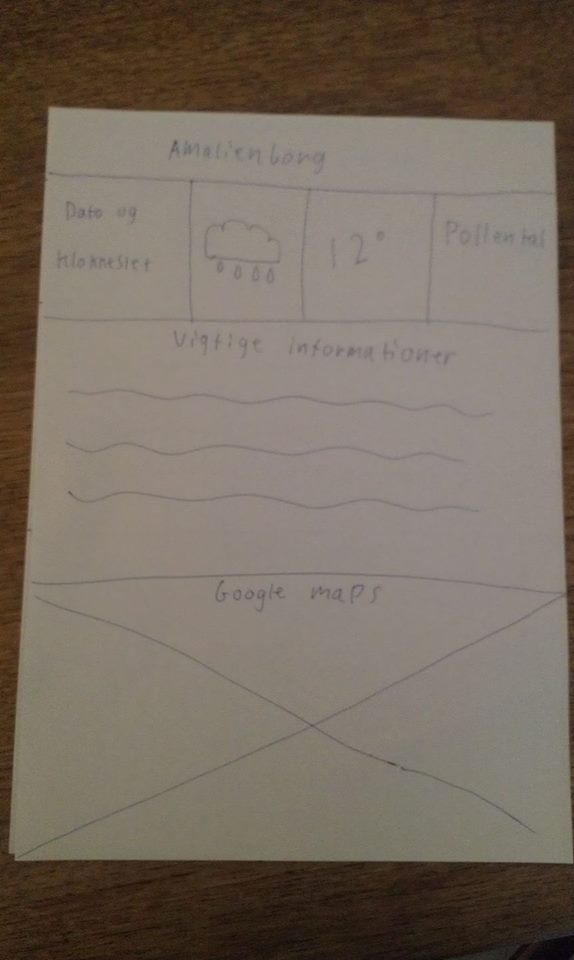 Amalienborg
Dato og
klokkeslet
12°
Pollental
Vigtige informationer
Google maps